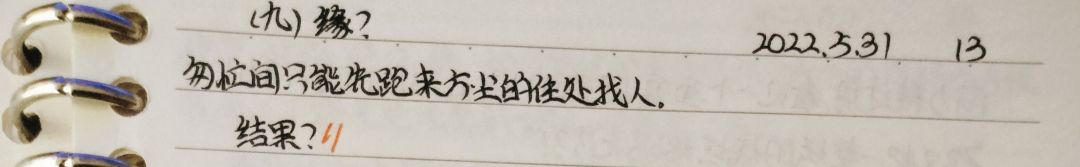 (九)缘?
2022.5.31 13
匆忙间只能先跑来方尘的住处找人。
结果?11